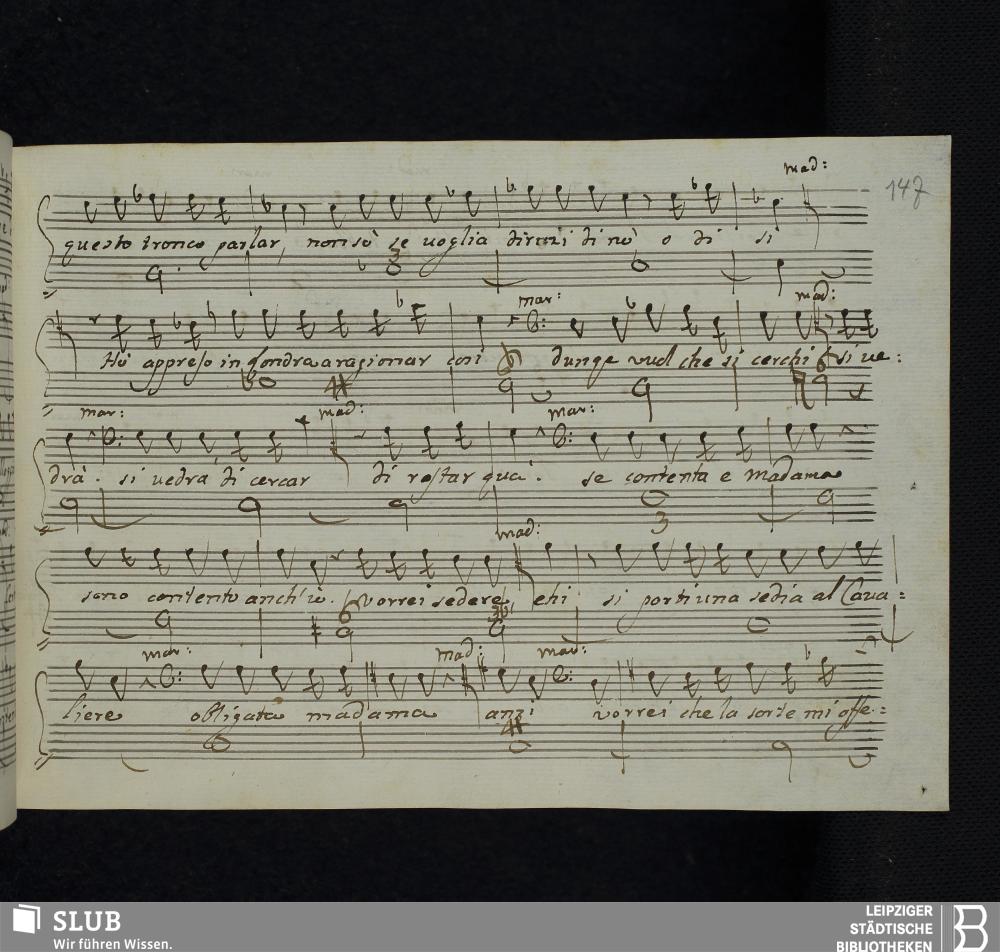 mad:
147
questo tronco parlar, non sò se voglia dirmi di nò o di si
mar: mad:
Hò appreso in Londra a ragionar così dunqe vuol che si cerchi si ve:
mar: mad: mar:
drà. si vedrà di cercar di restar quà. se contenta e madama
mad:
sono contento anch'io. vorrei sedere ehi si porti una sedia al Cava=
mar: mad: mad:
liere obligata madama anzi vorrei che la sorte mi offe:
SLUB
Wir führen Wissen.
LEIPZIGER
STÄDTISCHE
BIBLIOTHEKEN